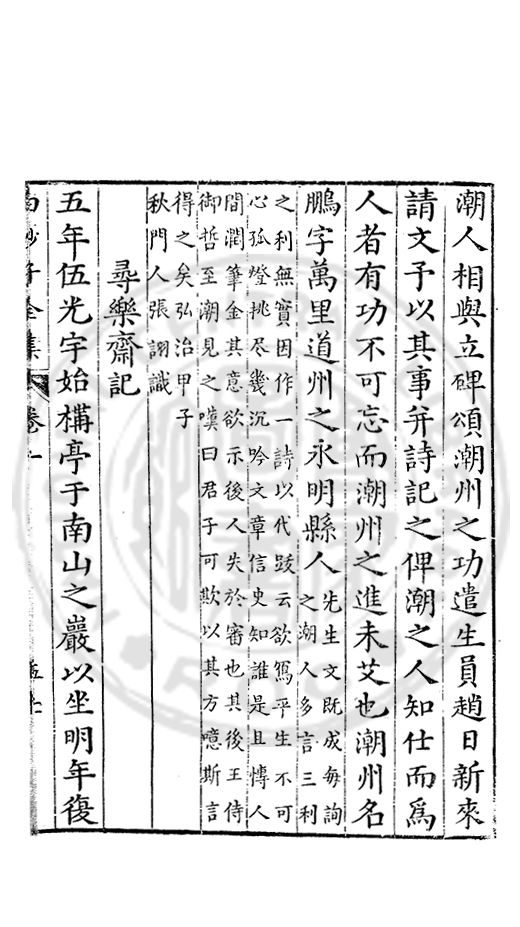 潮人相與立碑頌潮州之功遣生員趙日新來
請文予以其事并詩記之俾潮之人知仕而爲
人者有功不可忘而潮州之進未艾也潮州名
鵬字萬里道州之永明縣人先生文既成每詢
之潮人多言三利
之利無實因作一詩以代跋云欲寫平生不可
心孤燈挑尽幾沉吟文章信史知誰是且慱人
間潤筆金其意欲示後人失於審也其後王侍
御哲至潮見之嘆曰君子可欺以其方噫斯言
得之矣弘治甲子
秋門人張詡識
尋樂齋記
五年伍光宇始構亭于南山之巖以坐明年復
子全集 卷一